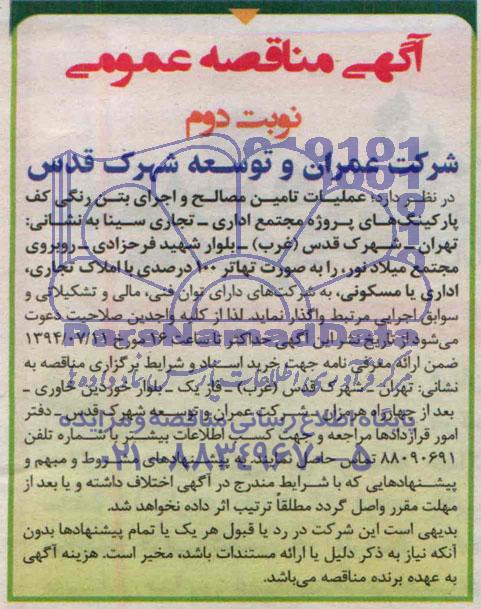 آگهی مناقصه عمومی
نوبت دوم
شرکت عمران و توسعه شهرک قدس
در نظر دارد؛ عملیات تامین مصالح و اجرای بتن رنگی کف
پارکینگ‌های پروژه مجتمع اداری ـ تجاری سینا به نشانی:
تهران ـ شهرک قدس (غرب) ـ بلوار شهید فرحزادی ـ روبروی
مجتمع میلاد نور، را به صورت تهاتر ۱۰۰ درصدی با املاک تجاری،
اداری یا مسکونی، به شرکت‌های دارای توان فنی، مالی و تشکیلاتی و
سوابق اجرایی مرتبط واگذار نماید. لذا از کلیه واجدین صلاحیت دعوت
می‌شود از تاریخ نشر این آگهی حداکثر تا ساعت ۱۶ مورخ ۱۳۹۴/۰۷/۱۱
ضمن ارائه معرفی نامه جهت خرید اسناد و شرایط برگزاری مناقصه به
نشانی: تهران ـ شهرک قدس (غرب) ـ فاز یک ـ بلوار خوردین خاوری ـ
بعد از چهارراه هرمزان ـ شرکت عمران و توسعه شهرک قدس ـ دفتر
امور قراردادها مراجعه و جهت کسب اطلاعات بیشتر با شماره تلفن
۸۸۰۹۰۶۹۱ تماس حاصل نمایند. به پیشنهادهای مشروط و مبهم و
پیشنهادهایی که با شرایط مندرج در آگهی اختلاف داشته و یا بعد از
مهلت مقرر واصل گردد مطلقاً ترتیب اثر داده نخواهد شد.
بدیهی است این شرکت در رد یا قبول هر یک یا تمام پیشنهادها بدون
آنکه نیاز به ذکر دلیل یا ارائه مستندات باشد، مخیر است. هزینه آگهی
به عهده برنده مناقصه می‌باشد.
ParsNamadData
پایگاه اطلاع رسانی مناقصه و مزایده
۰۲۱-۸۸۳۴۹۶۷۰-۵